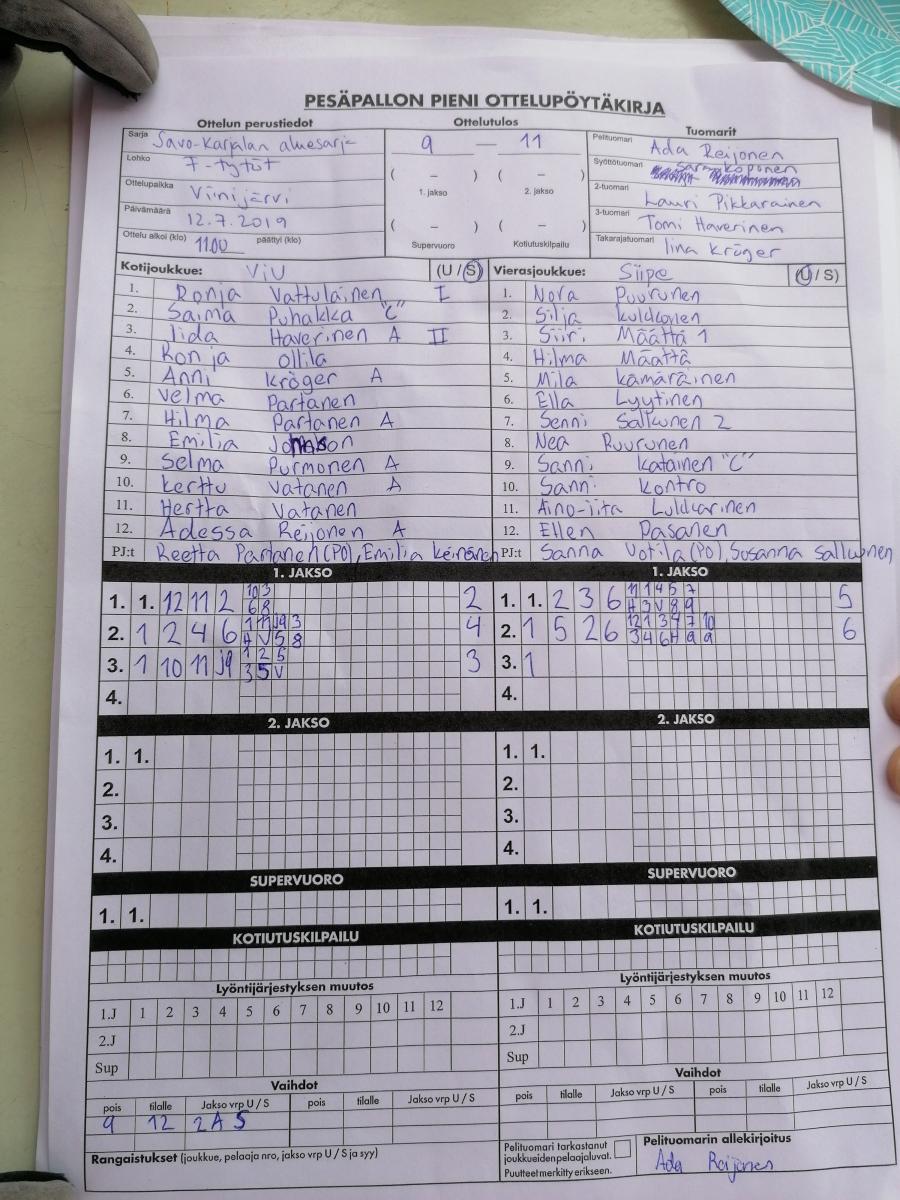 PESÄPALLON PIENI OTTELUPÖYTÄKIRJA
Ottelun perustiedot Ottelutulos Tuomarit
Sarja Savo-Karjalan aluesarja 9 – 11 Pelituomari Ada Reijonen
Lohko F-tytöt ( – ) ( – ) Syöttötuomari
Ottelupaikka Viinijärvi 1. jakso 2. jakso 2-tuomari Lauri Pikkarainen
Päivämäärä 12.7.2019 ( – ) ( – ) 3-tuomari Tomi Haverinen
Ottelu alkoi (klo) 11.00 päättyi (klo) Supervuoro Kotiutuskilpailu Takarajatuomari Iina Kröger
Kotijoukkue: ViU (U / S) Vierasjoukkue: Siipe (U / S)
1. Ronja Vattulainen I 1. Nora Puurunen
2. Saima Puhakka "C" 2. Silja Kukkonen
3. Iida Haverinen A II 3. Siiri Määttä 1
4. Ronja Ollila 4. Hilma Määttä
5. Anni Kröger A 5. Mila Kämäräinen
6. Velma Partanen 6. Ella Lyytinen
7. Hilma Partanen A 7. Senni Sallinen 2
8. Emilia 8. Nea Puurunen
9. Selma Purmonen A 9. Sanni Katainen "C"
10. Kerttu Vatanen A 10. Sanni Kontro
11. Hertta Vatanen 11. Aino-Iita Lukkarinen
12. Adessa Reijonen A 12. Ellen Pasanen
PJ:t Reetta Partanen (PO), Emilia Keinänen PJ:t Sanna Votila (PO), Susanna Sallinen
1. JAKSO 1. JAKSO
1. 1. 12 11 2 10 3 2 1. 1. 2 3 6 11 1 4 5 7 5
6 8 H 3 V 8 9
2. 1 2 4 6 4 2. 1 5 2 6 12 1 3 4 7 10 6
H V 5 8 3 4 6 H 9 9
3. 1 10 11 j9 1 2 5 3 3. 1
3 5 V
4. 4.
2. JAKSO 2. JAKSO
1. 1. 1. 1.
2. 2.
3. 3.
4. 4.
SUPERVUORO SUPERVUORO
1. 1. 1. 1.
KOTIUTUSKILPAILU KOTIUTUSKILPAILU
Lyöntijärjestyksen muutos Lyöntijärjestyksen muutos
1.J 1 2 3 4 5 6 7 8 9 10 11 12 1.J 1 2 3 4 5 6 7 8 9 10 11 12
2.J 2.J
Sup Sup
Vaihdot Vaihdot
pois tilalle Jakso vrp U / S pois tilalle Jakso vrp U / S pois tilalle Jakso vrp U / S pois tilalle Jakso vrp U / S
9 12 2A S
Rangaistukset (joukkue, pelaaja nro, jakso vrp U / S ja syy) Pelituomari tarkastanut joukkueiden pelaajaluvat. Pelituomarin allekirjoitus
Puutteet merkitty erikseen. Ada Reijonen